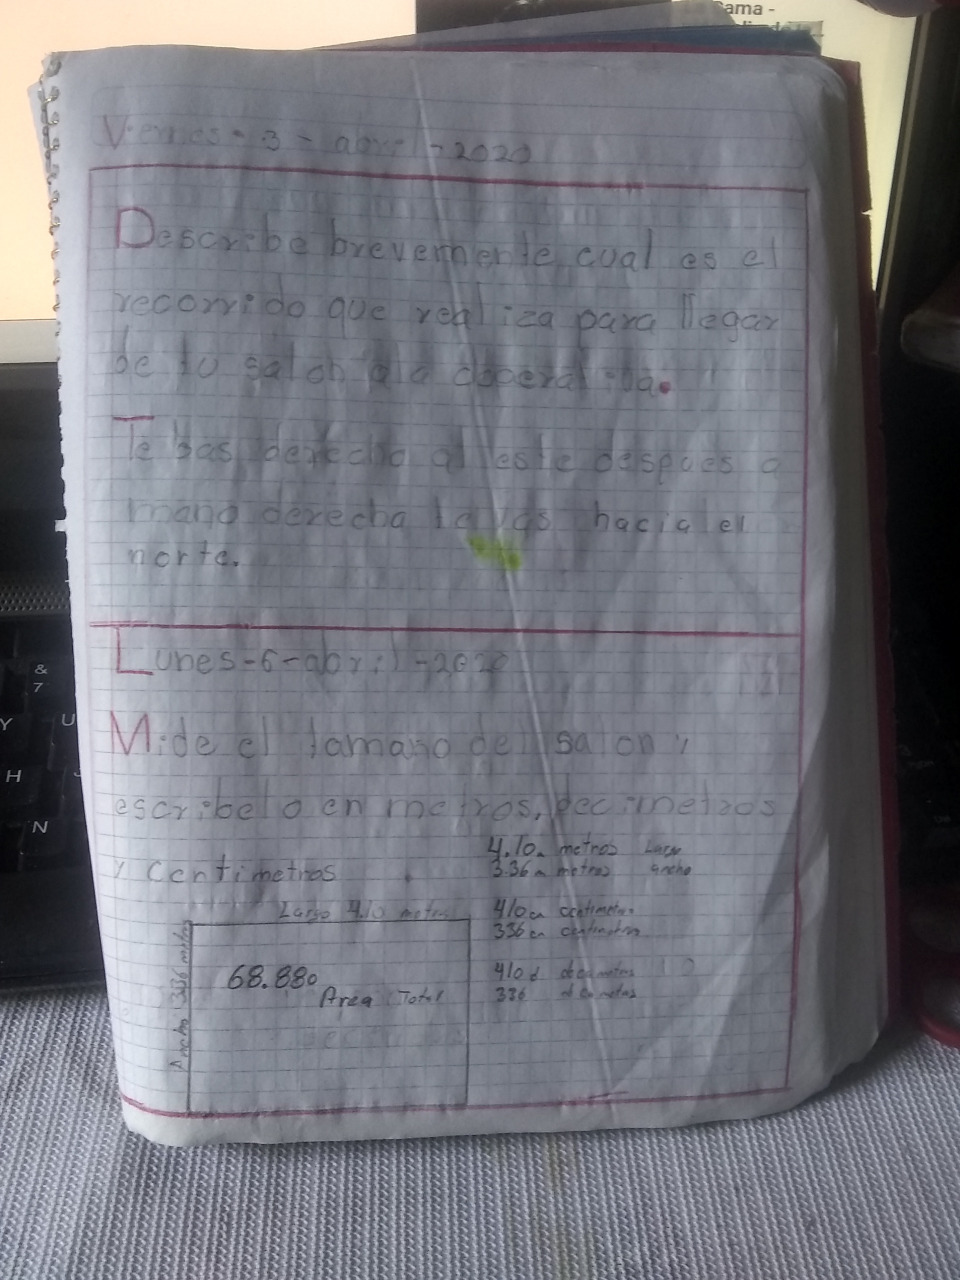 ama -
Viernes - 3 - abril - 2020
Describe brevemente cual es el
recorrido que realiza para llegar
de tu salon a la
Te bas derecho al este despues a
mano derecha te vas hacia el
norte.
Lunes-6-abril-2020
Mide el tamaño del salon y
escribelo en metros, decimetros
y centimetros
4.10 metros Largo
3.36 m metros ancho
Largo 4.10 metros
410 cm centimetros
336 cm centimetros
Ancho 3.36 metros
68.880
Area Total
410 d
336
&
7
Y U
H
N